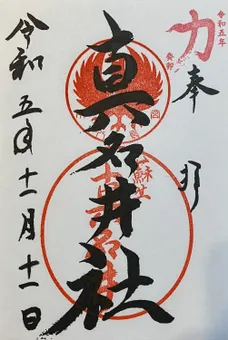 令和五年
癸卯
力
奉拝
真名井社
令和五年十一月十一日